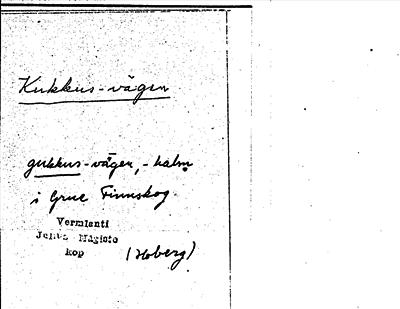 Kukkus-vägen
gukkus-vägen, -halm
i Grue Finnskog.
Vermlanti
Julius Mägiste
kop (Hoberg)